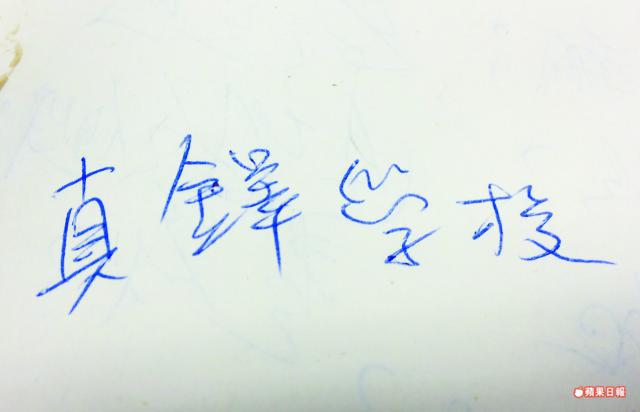 真鐸學校
蘋果日報